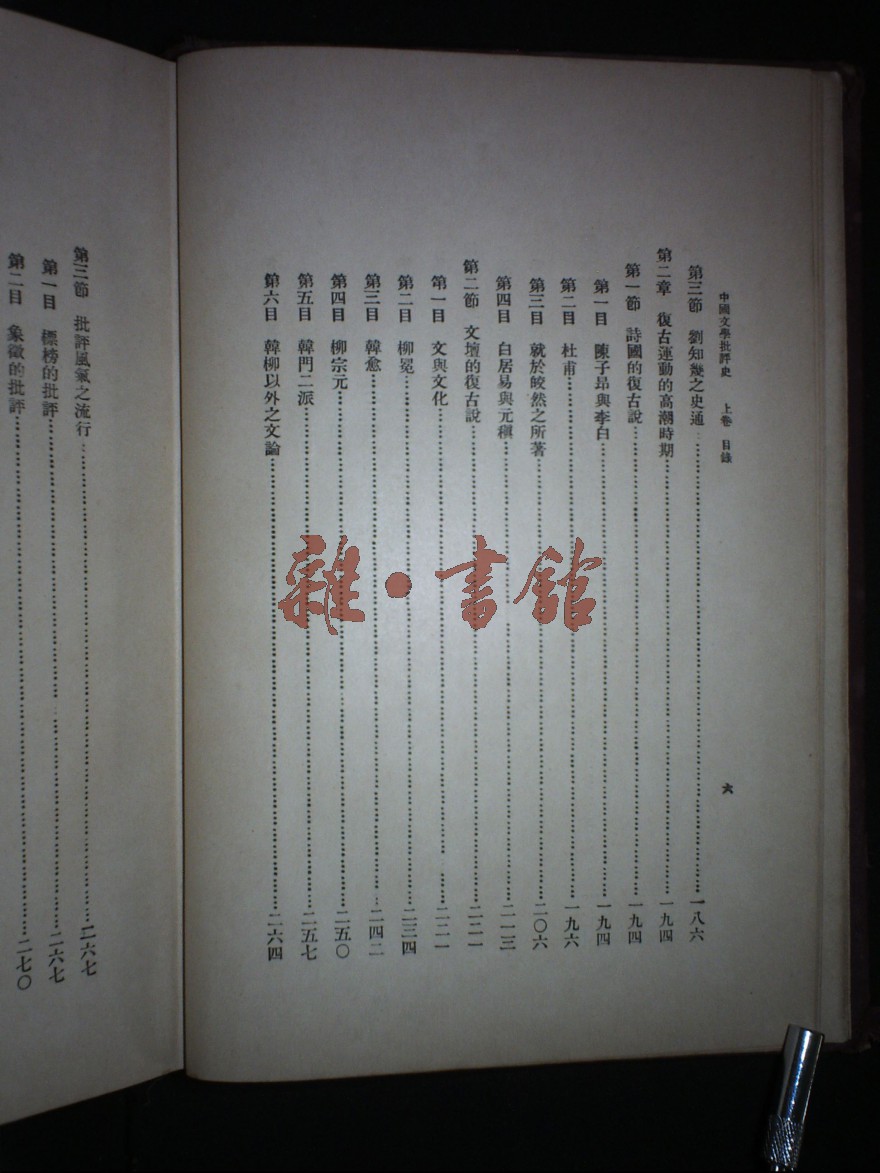 中國文學批評史　上卷　目錄
六
第三節　劉知幾之史通……一八六
第二章　復古運動的高潮時期……一九四
第一節　詩國的復古說……一九四
第一目　陳子昂與李白……一九四
第二目　杜甫……一九六
第三目　就於皎然之所著……二〇六
第四目　白居易與元稹……二一三
第二節　文壇的復古說……二二一
第一目　文與文化……二二一
第二目　柳冕……二三四
第三目　韓愈……二四二
第四目　柳宗元……二五〇
第五目　韓門二派……二五七
第六目　韓柳以外之文論……二六四
第三節　批評風氣之流行……二六七
第一目　標榜的批評……二六七
第二目　象徵的批評……二七〇
雜·書館